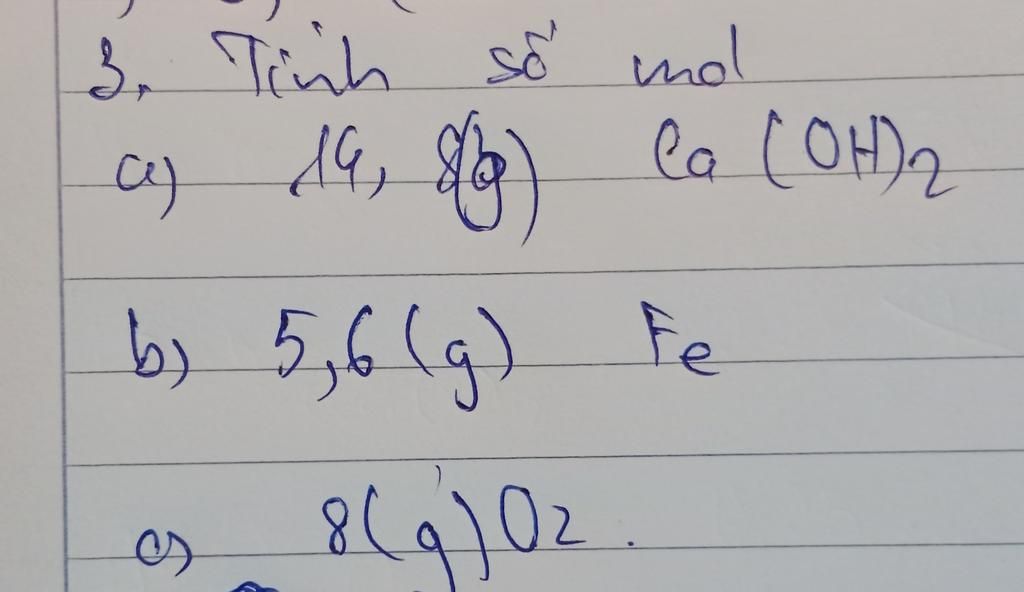 3, Tính số mol
a) 14, 8(g) Ca(OH)2
b) 5,6(g) Fe
c) 8(g) O2.